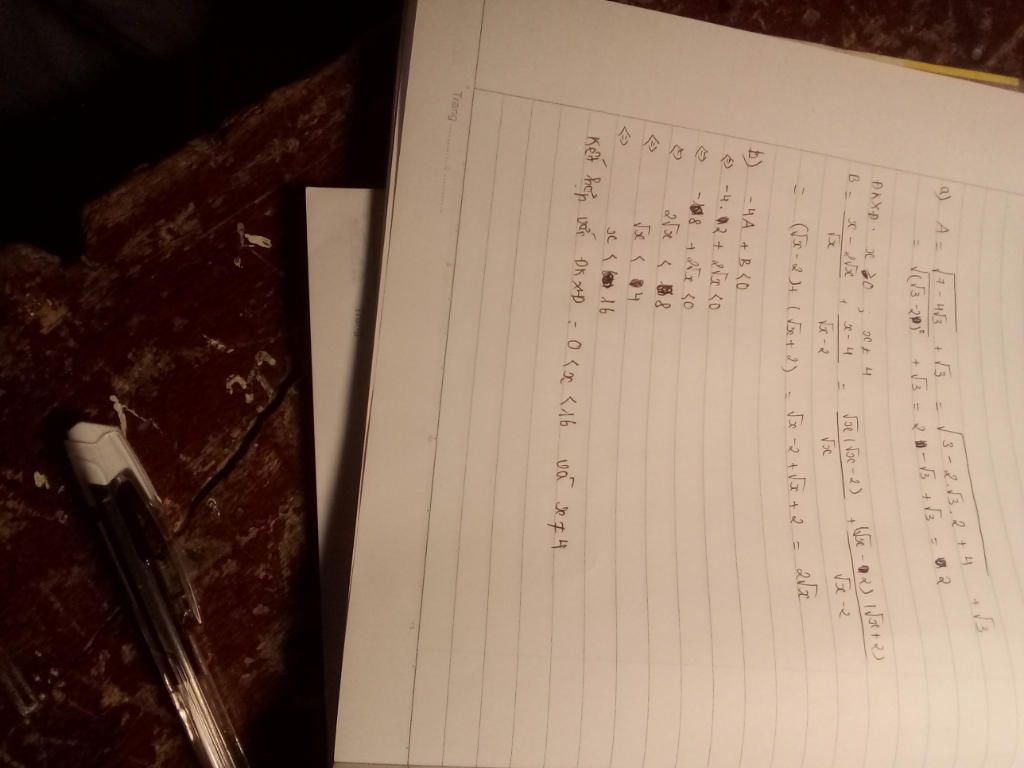 a) A = √(7 - 4√3) + √3 = √(3 - 2.√3.2 + 4) + √3
= √(√3 - 2)² + √3 = 2 - √3 + √3 = 2
ĐKXĐ: x > 0 ; x ≠ 4
B = (x - 2√x)/√x + (x - 4)/(√x - 2) = √x(√x - 2)/√x + (√x - 2)(√x + 2)/(√x - 2)
= (√x - 2) + (√x + 2) = √x - 2 + √x + 2 = 2√x
b) -4A + B < 0
⇔ -4.2 + 2√x < 0
⇔ -8 + 2√x < 0
⇔ 2√x < 8
⇔ √x < 4
⇔ x < 16
Kết hợp với ĐKXĐ = 0 < x < 16 và x ≠ 4
Trang